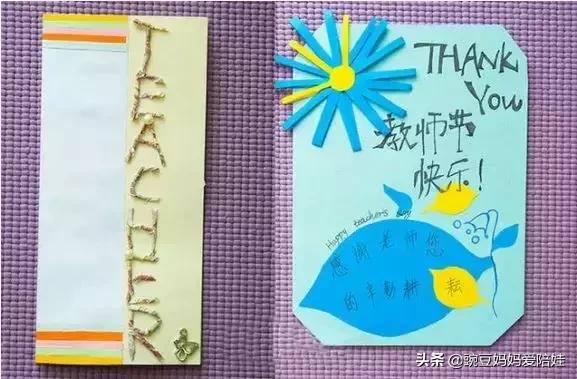 TEACHER
THANK
You
教师节
快乐!
Happy teacher's Day
感谢老师您
的辛勤耕耘
头条 @豌豆妈妈爱陪娃